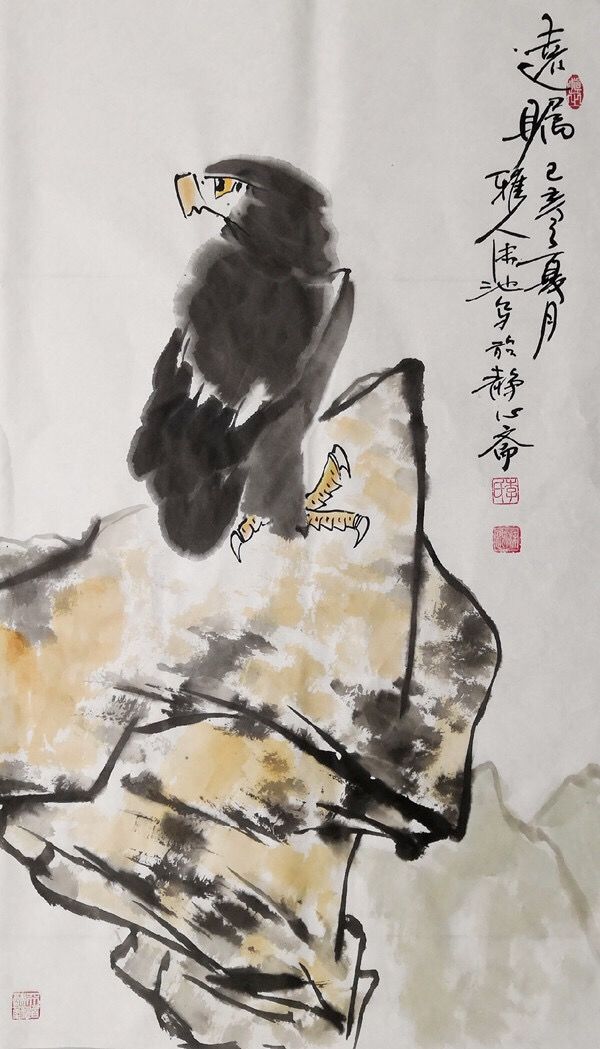 遠瞩 己亥之夏月
雅人 池写於静心斋